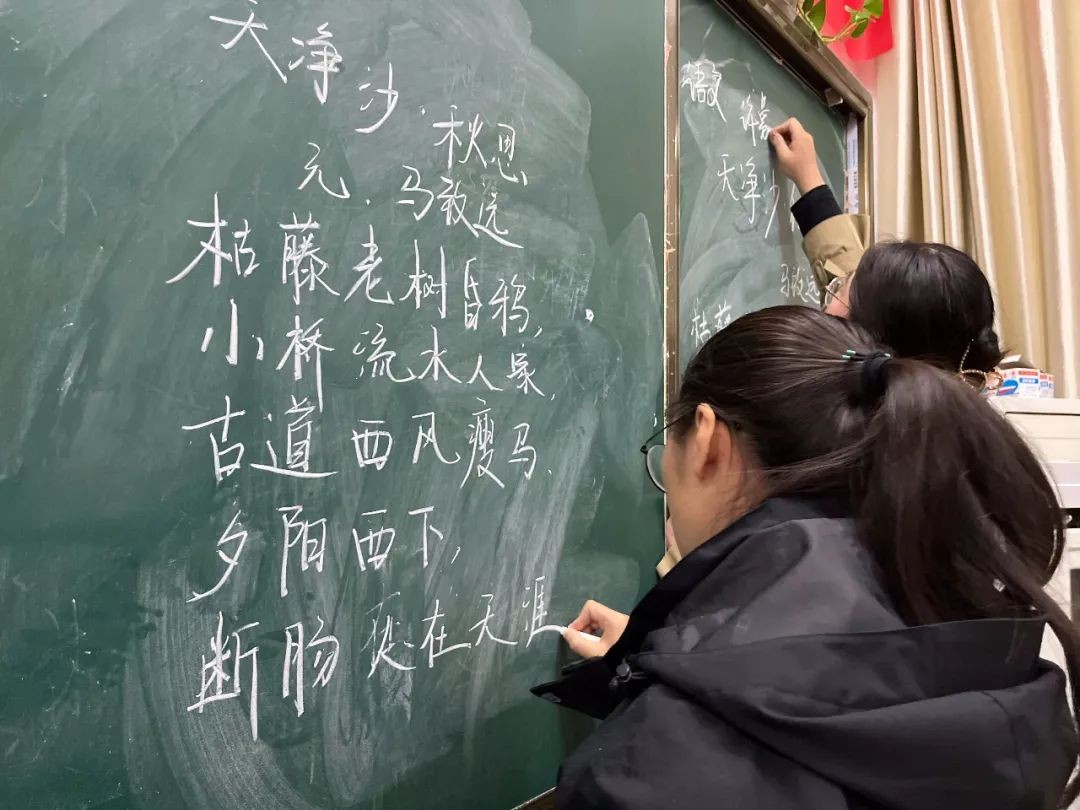 天净沙·秋思
元·马致远
枯藤老树昏鸦,
小桥流水人家,
古道西风瘦马.
夕阳西下,
断肠在天涯
天净沙
马致远
枯藤